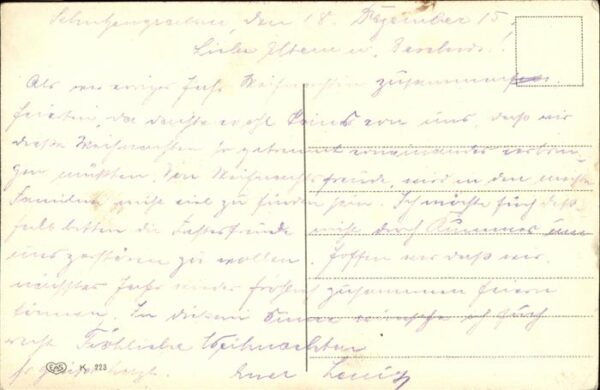 Schützengraben, den 18. Dezember 15.
Liebe Eltern u. Geschw.!
Als wir voriges Jahr Weihnachten zusammen
feierten, da dachte wohl Keins von uns, daß wir
diese Weihnachten so getrennt voneinander verbrin-
gen müßten. Von Weihnachtsfreude, wird in den
Familien nicht viel zu finden sein. Ich möchte Euch des-
halb bitten die Festfreude nicht durch Kummer
uns zerstören zu wollen. Hoffen wir daß wir
nächstes Jahr wieder fröhlich zusammen feiern
können. In diesem Sinne wünsche ich Euch
recht Fröhliche Weihnachten
Euer
EAS K. 223